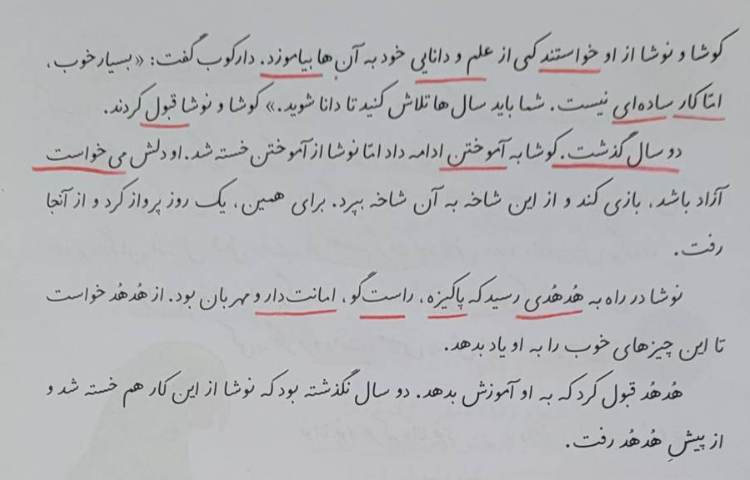 کوشا و نوشا از او خواستند کمی از علم و دانایی خود به آن‌ها بیاموزد. دارکوب گفت: «بسیار خوب،
امّا کار ساده‌ای نیست. شما باید سال‌ها تلاش کنید تا دانا شوید.» کوشا و نوشا قبول کردند.
دو سال گذشت. کوشا به آموختن ادامه داد امّا نوشا از آموختن خسته شد. او دلش می‌خواست
آزاد باشد، بازی کند و از این شاخه به آن شاخه بپرد. برای همین، یک روز پرواز کرد و از آنجا
رفت.
نوشا در راه به هُدهُدی رسید که پاکیزه، راست‌گو، امانت‌دار و مهربان بود. از هُدهُد خواست
تا این چیزهای خوب را به او یاد بدهد.
هُدهُد قبول کرد که به او آموزش بدهد. دو سال نگذشته بود که نوشا از این کار هم خسته شد و
از پیشِ هُدهُد رفت.